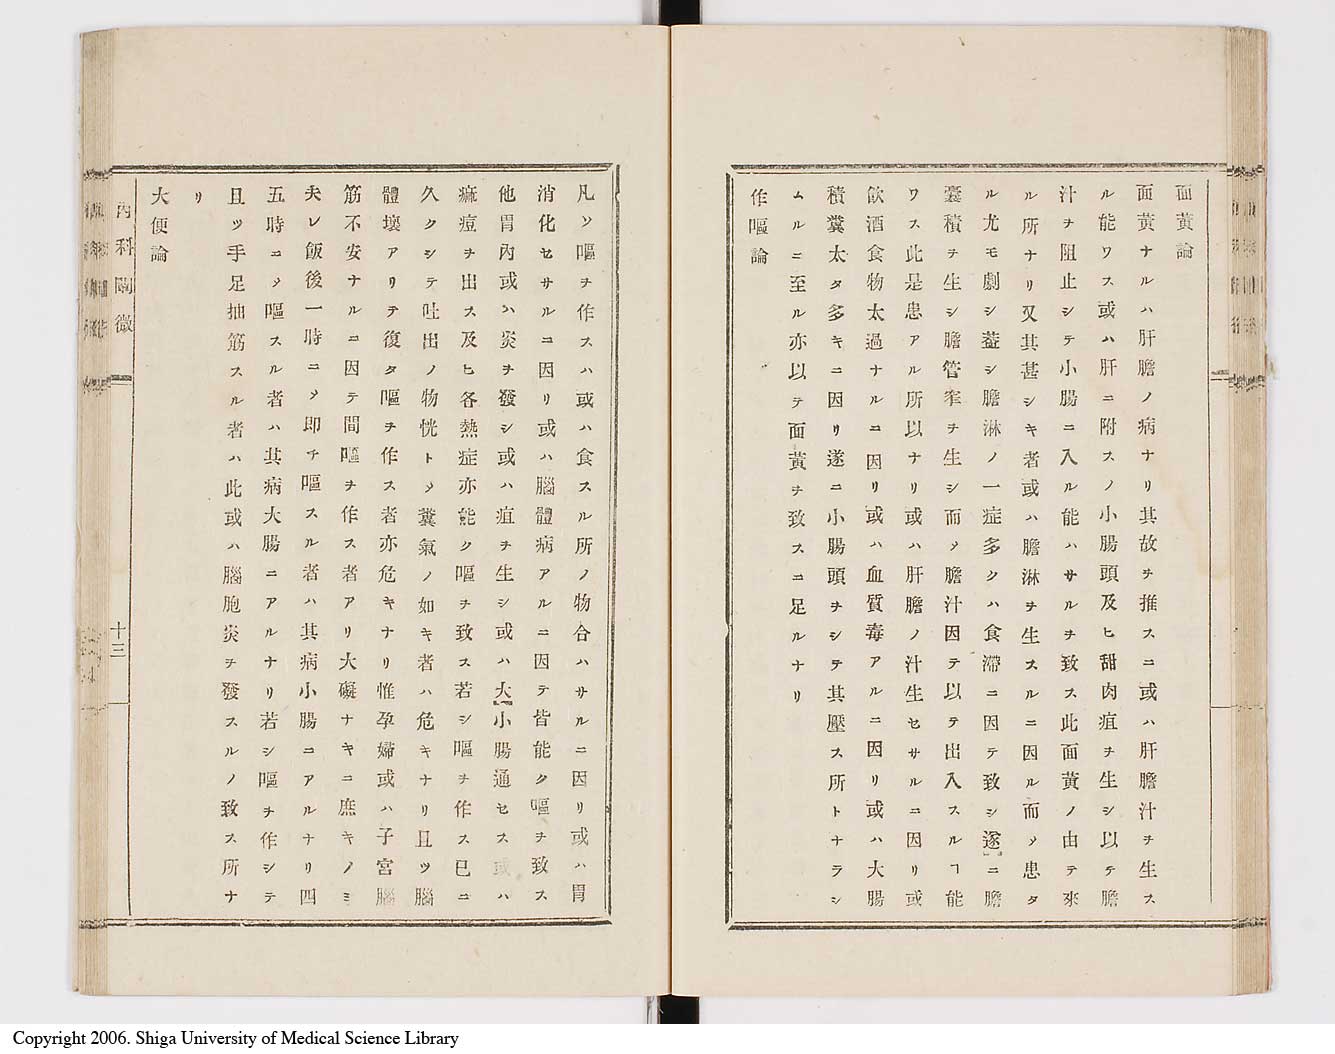 面黃論
面黃ナルハ肝膽ノ病ナリ其故ヲ推スニ或ハ肝膽汁ヲ生ス
ル能ワス或ハ肝ニ附スノ小腸頭及ヒ甜肉疽ヲ生シ以テ膽
汁ヲ阻止シテ小腸ニ入ル能ハサルヲ致ス此面黃ノ由テ來
ル所ナリ又其甚シキ者或ハ膽淋ヲ生スルニ因ル而〆患タ
ル尤モ劇シ蓋シ膽淋ノ一症多クハ食滯ニ因テ致シ遂ニ膽
囊積ヲ生シ膽管窄ヲ生シ而〆膽汁因テ以テ出入スルヿ能
ワス此是患アル所以ナリ或ハ肝膽ノ汁生セサルニ因リ或
飮酒食物太過ナルニ因リ或ハ血質毒アルニ因リ或ハ大腸
積糞太タ多キニ因リ遂ニ小腸頭ヲシテ其壓ス所トナラシ
ムルニ至ル亦以テ面黃ヲ致スニ足ルナリ
作嘔論
凡ソ嘔ヲ作スハ或ハ食スル所ノ物合ハサルニ因リ或ハ胃
消化セサルニ因リ或ハ腦體病アルニ因テ皆能ク嘔ヲ致ス
他胃內或ハ炎ヲ發シ或ハ疽ヲ生シ或ハ大小腸通セス或ハ
痲痘ヲ出ス及ヒ各熱症亦能ク嘔ヲ致ス若シ嘔ヲ作ス已ニ
久クシテ吐出ノ物恍ト〆糞氣ノ如キ者ハ危キナリ且ツ腦
體壞アリテ復タ嘔ヲ作ス者亦危キナリ惟孕婦或ハ子宮腦
筋不安ナルニ因テ間嘔ヲ作ス者アリ大礙ナキニ庶キノミ
夫レ飯後一時ニ〆卽チ嘔スル者ハ其病小腸ニアルナリ四
五時ニ〆嘔スル者ハ其病大腸ニアルナリ若シ嘔ヲ作シテ
且ツ手足抽筋スル者ハ此或ハ腦胞炎ヲ發スルノ致ス所ナ
リ
大便論
內科闡微
十三
Copyright 2006. Shiga University of Medical Science Library